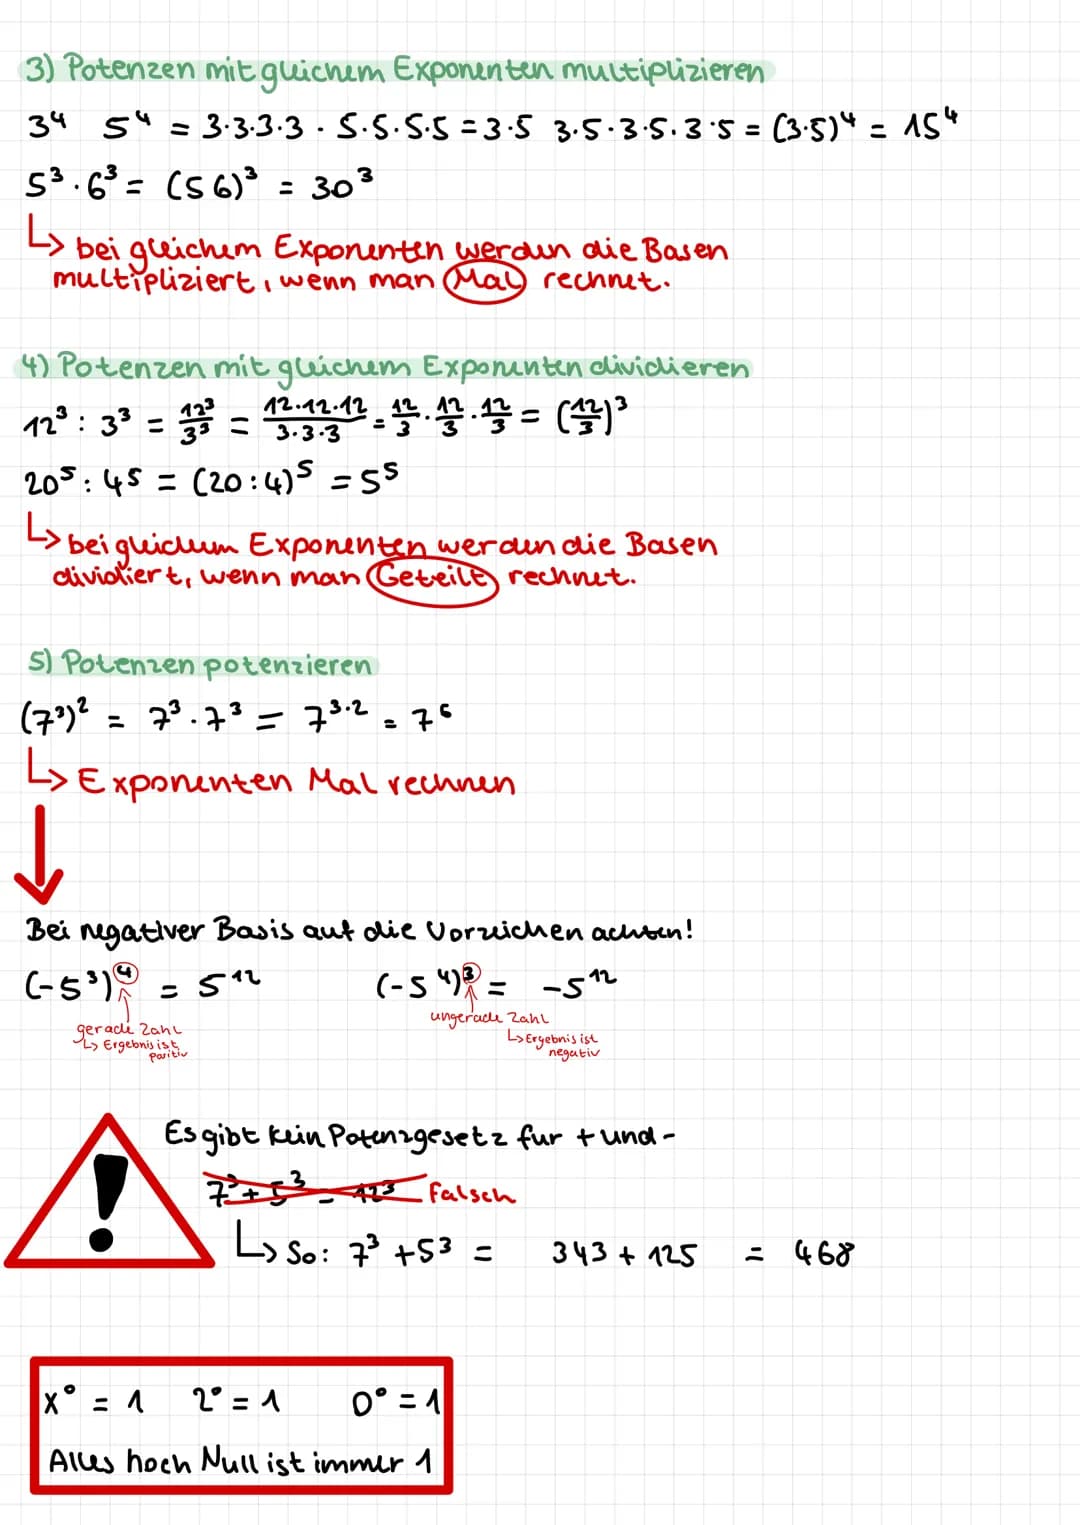 3) Potenzen mit gleichem Exponenten multiplizieren
3⁴ 5⁴ = 3·3·3·3 · 5·5·5·5 = 3·5 3·5·3·5·3·5 = (3·5)⁴ = 15⁴
5³·6³ = (5 6)³ = 30³
↳ bei gleichem Exponenten werden die Basen
multipliziert, wenn man Mal rechnet.
4) Potenzen mit gleichem Exponenten dividieren
12³ : 3³ = 12³/3³ = 12·12·12/3·3·3 = 12/3 · 12/3 · 12/3 = (12/3)³
20⁵ : 4⁵ = (20:4)⁵ = 5⁵
↳ bei gleichem Exponenten werden die Basen
dividiert, wenn man Geteilt rechnet.
5) Potenzen potenzieren
(7³)² = 7³·7³ = 7³·² = 7⁶
↳ Exponenten Mal rechnen
Bei negativer Basis auf die Vorzeichen achten!
(-5³)⁴ = 5¹² (-5⁴)³ = -5¹²
gerade Zahl
↳ Ergebnis ist
positiv
ungerade Zahl
↳ Ergebnis ist
negativ
Es gibt kein Potenzgesetz fur + und -
7³ + 5³ = 12³ Falsch
↳ So: 7³ + 5³ = 343 + 125 = 468
x⁰ = 1 2⁰ = 1 0⁰ = 1
Alles hoch Null ist immer 1